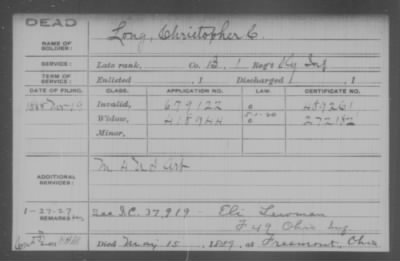 DEAD
NAME OF SOLDIER: Long, Christopher C.
SERVICE: Late rank, Co. B, 1 Reg't Ky Inf
TERM OF SERVICE: Enlisted , 1 Discharged , 1
DATE OF FILING. CLASS. APPLICATION NO. LAW. CERTIFICATE NO.
1888 Invalid, 679122 489261
Widow, 418944 272182
Minor,
ADDITIONAL SERVICES: M 4 U S Art
1-27-27 REMARKS See I.C. 37,919 - Eli Lewman
F 49 Ohio Inf
Died May 15, 1889, at Freemont, Ohio